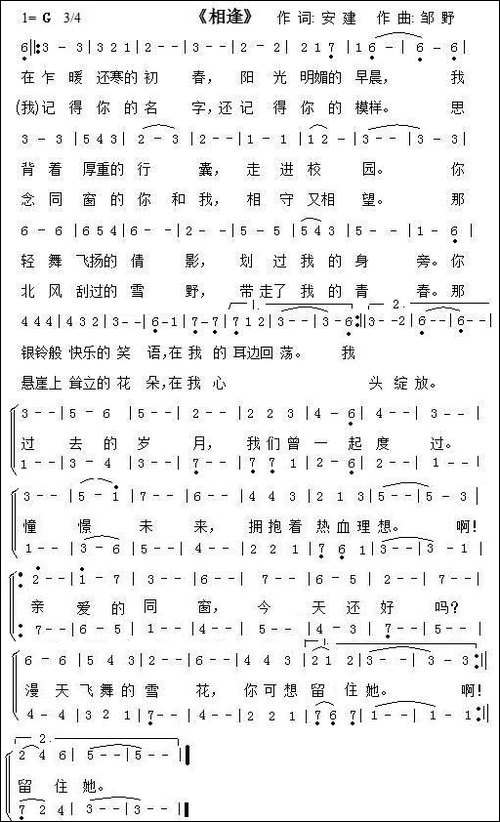 1= G 3/4 《相逢》 作词:安建 作曲:邹野
6‖:3-3|321|2--|3--|2-2|217|16-|6--|
在乍暖还寒的初春,阳光明媚的早晨,我
(我)记得你的名字,还记得你的模样。思
3-3|543|2-3|2--|1-1|12-|3--|3-3|
背着厚重的行囊,走进校园。你
念同窗的你和我,相守又相望。那
6-6|654|6--|2--|5-5|543|5--|1-6|
轻舞飞扬的倩影,划过我的身旁。你
北风刮过的雪野,带走了我的青春。那
1. 2.
444|432|3--|6-1|7-7|712|3--|3-6:‖3--2|6--|6--|
银铃般快乐的笑语,在我的耳边回荡。我
悬崖上耸立的花朵,在我心头绽放。
3--|5-6|5-4|5--|2-2|223|4-6|4--|3--|
过去的岁月,我们曾一起度过。
1--|3-4|3-3|7--|7-7|771|2-6|2--|1--|
3--|5-1|7--|6--|443|443|213|5--|5-3|
憧憬未来,拥抱着热血理想。啊!
1--|3-6|5--|4--|221|221|761|3--|3-1|
:2--|1-7|3--|6--|7--|6--|6-5|7--|7--|
亲爱的同窗,今天还好吗?
:7--|6-5|1--|4--|5--|4--|4-3|7--|5--|
1.
6-6|543|2--|6--|443|443|212|3--|3-3:‖
漫天飞舞的雪花,你可想留住她。啊!
4-4|321|7--|4--|221|221|767|1--|1-1:‖
2.
246|5--|5--‖
留住她。
724|3--|3--‖